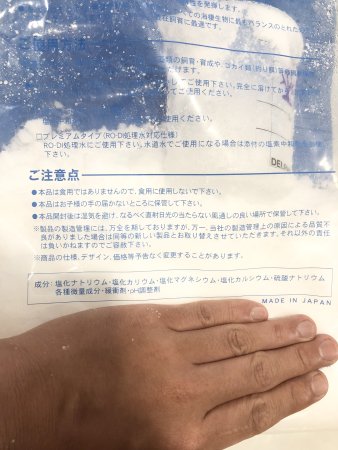 性を発揮します。
べての海棲生物に最もバランスのとれた
ご使用方法
てご使用下さい。完全に溶けてか
してご使用ください。
ください。
□プレミアムタイプ（RO-DI処理水対応仕様）
RO-DI処理水にご使用下さい。水道水でご使用になる場合は添付の塩素中和
下さい。
ご注意点
●本品は食用ではありませんので、食用に使用しないで下さい。
●本品はお子様の手の届かないところに保管して下さい。
●本品開封後は湿気を避け、なるべく直射日光の当たらない風通しの良い場所で保管して下さい。
※製品の製造管理には、万全を期しておりますが、万一、当社の製造管理上の原因による品質不
良がありました場合は同等の新しい製品とお取り替えさせていただきます。それ以外の責任
は負いかねますのでご容赦下さい。
※商品の仕様、デザイン、価格等予告なく変更することがあります。
成分：塩化ナトリウム・塩化カリウム・塩化マグネシウム・塩化カルシウム・硫酸ナトリウム
各種微量成分・緩衝剤・pH調整剤
MADE IN JAPAN